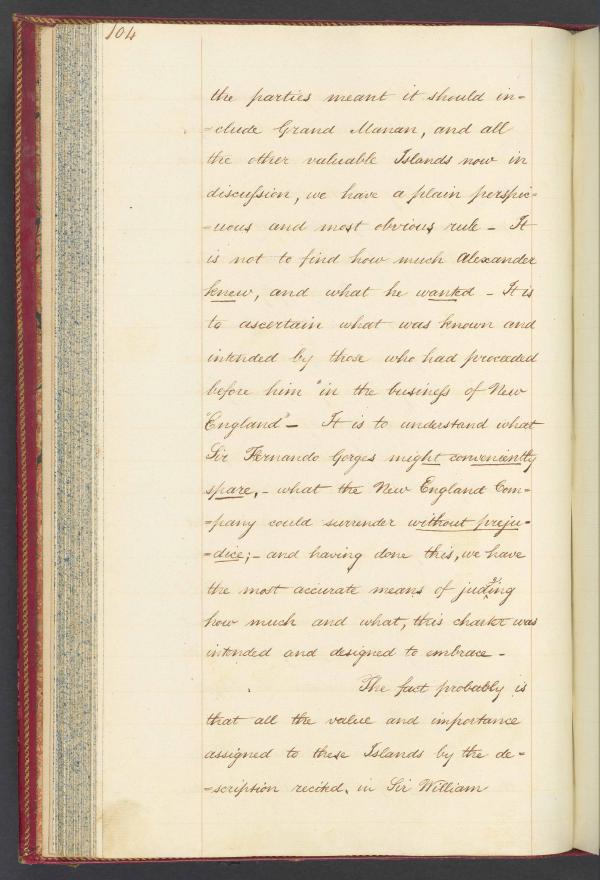 104
the parties meant it should in-
=clude Grand Manan, and all
the other valuable Islands now in
discussion, we have a plain perspic=
=uous and most obvious rule - It
is not to find how much Alexander
knew, and what he wanted - It is
to ascertain what was known and
intended by those who had proceeded
before him "in the business of New
"England" - It is to understand what
Sir Fernando Gorges might conveniently
spare, - what the New England Com=
=pany could surrender without preju=
=dice; - and having done this, we have
the most accurate means of judging
how much and what, this charter was
intended and designed to embrace -
The fact probably is
that all the value and importance
assigned to these Islands by the de=
=scription recited, in Sir William